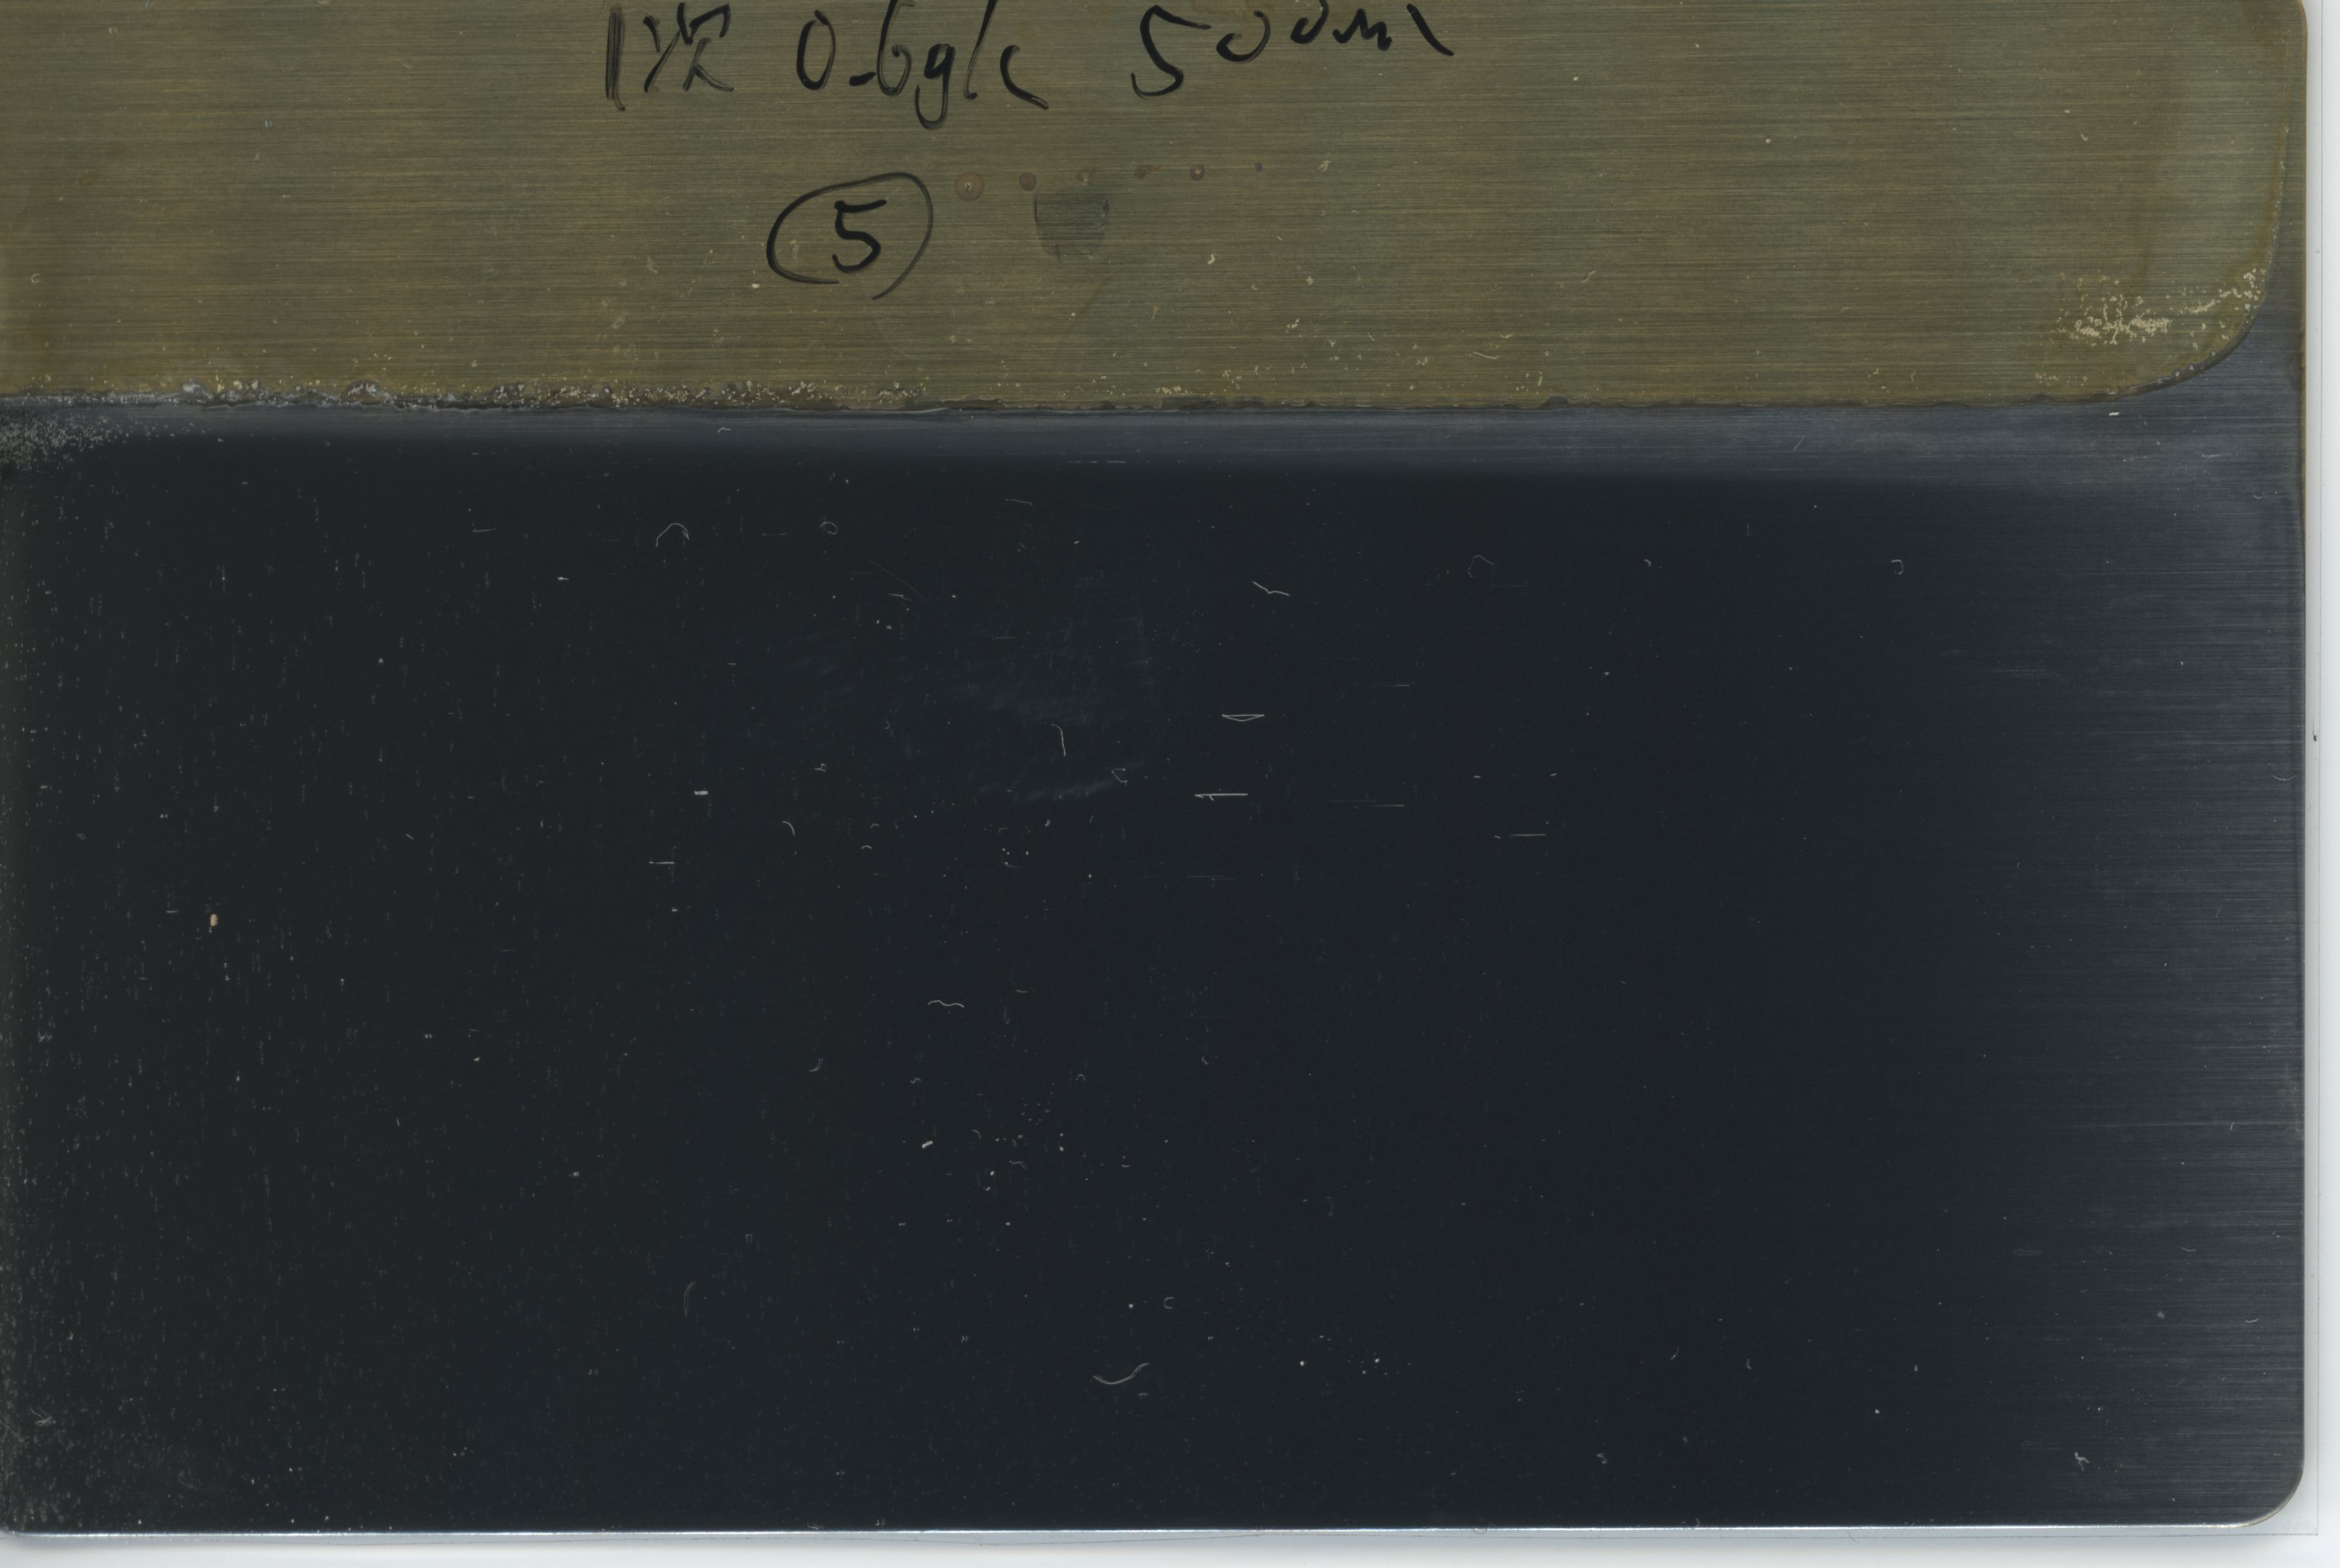 1次 0.6g/L 500ml
⑤